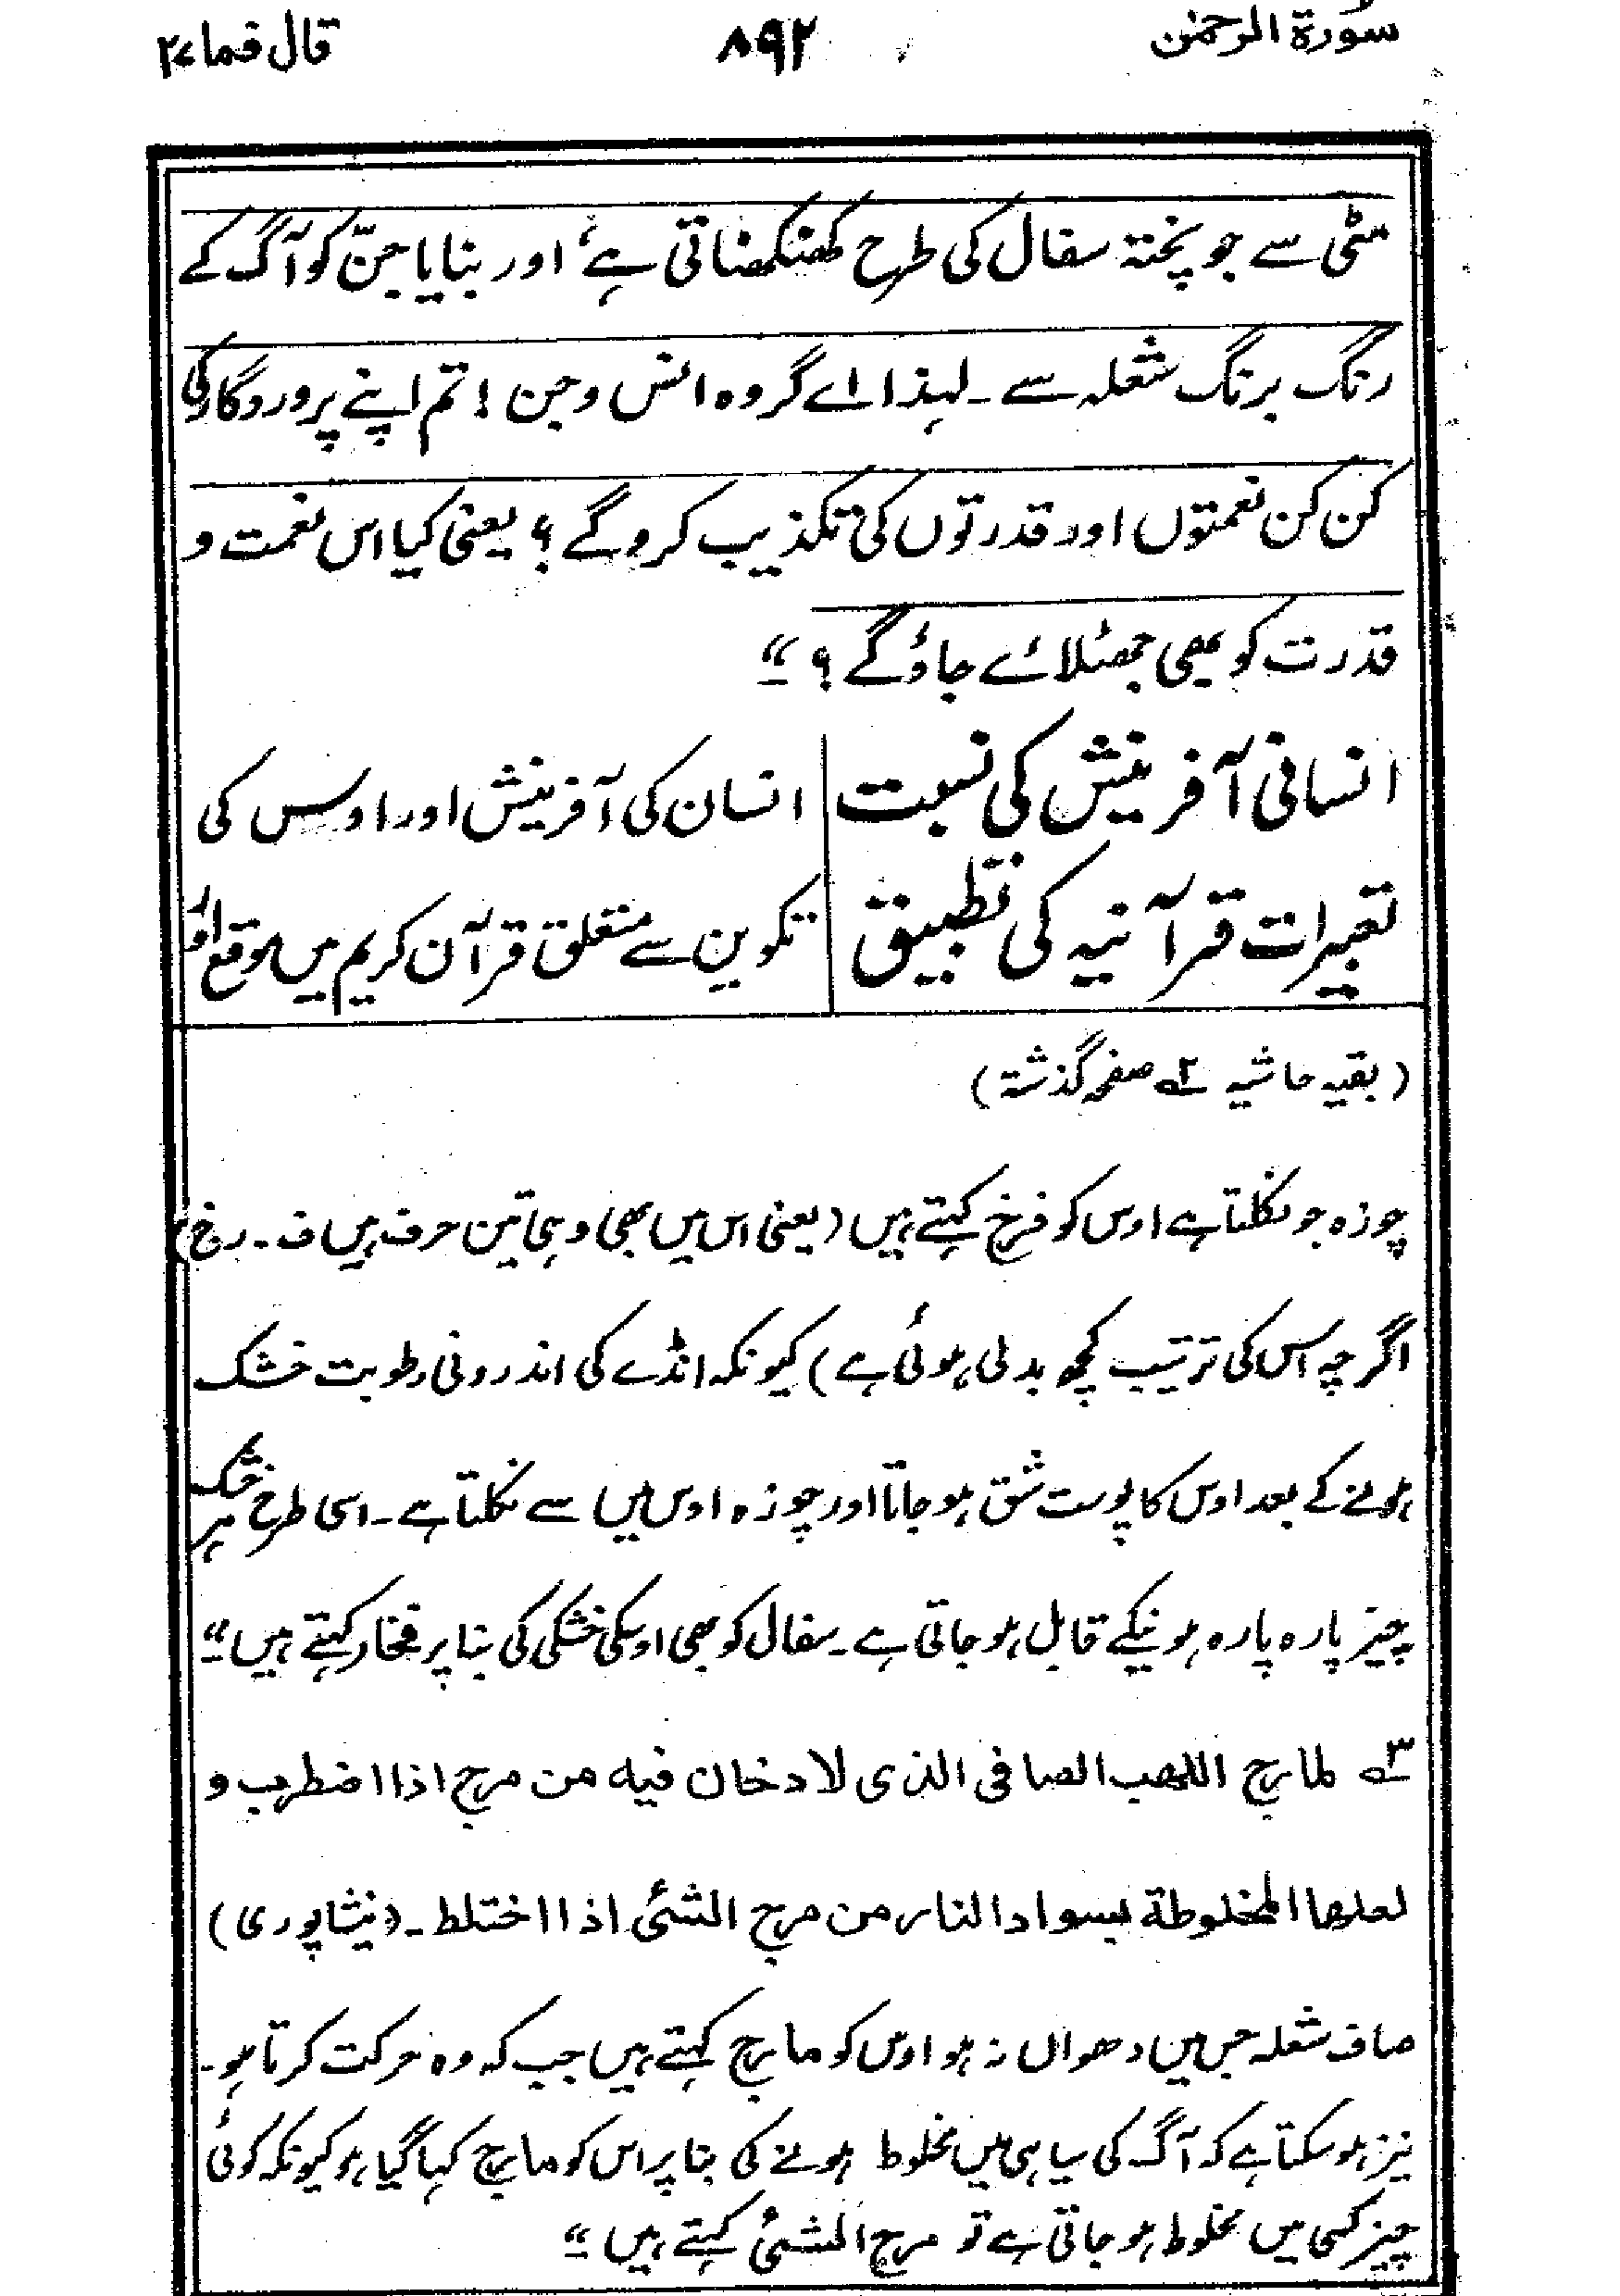 سورة الرحمٰن ۸۹۲ قال فما ۲۷
مٹی سے جو پختہ سفال کی طرح کھنکھناتی ہے، اور بنایا جنّ کو آگ کے
رنگ برنگ شعلہ سے ۔ لہذا اے گروہ انس و جن ! تم اپنے پروردگار کی
کن کن نعمتوں اور قدرتوں کی تکذیب کروگے ؟ یعنی کیا اس نعمت و
قدرت کو بھی جھٹلائے جاؤگے ؟ "
انسانی آفرینش کی نسبت
تعبیرات قرآنیہ کی تطبیق
انسان کی آفرینش اور اوس کی
تکوین سے متعلق قرآن کریم میں موقع اور
( بقیہ حاشیہ ۲ صفحہ گذشتہ )
چوزہ جو نکلتا ہے اوس کو فرخ کہتے ہیں ( یعنی اس میں بھی وہی تین حرف ہیں ف ۔ ر خ )
اگرچہ اس کی ترتیب کچھ بدلی ہوئی ہے ) کیونکہ انڈے کی اندرونی رطوبت خشک
ہونے کے بعد اوس کا پوست شق ہو جاتا اور چوزہ اوس میں سے نکلتا ہے ۔ اسی طرح ہر خشک
چیز پارہ پارہ ہونیکے قابل ہو جاتی ہے ۔ سفال کو بھی اوسکی خشکی کی بنا پر فخار کہتے ہیں "
۳ المارج اللهب الصافی الذی لا دخان فیه من مرج اذا اضطرب و
لعلها المخلوطة بسواد النار من مرج الشئی اذا اختلط ۔ (نیشاپوری)
صاف شعلہ جس میں دھواں نہ ہو اوس کو مارج کہتے ہیں جب کہ وہ حرکت کرتا ہو ۔
نیز ہو سکتا ہے کہ آگ کی سیاہی میں مخلوط ہونے کی بنا پر اس کو مارج کہا گیا ہو کیونکہ کوئی
چیز کسی میں مخلوط ہو جاتی ہے تو مرج الشئی کہتے ہیں "